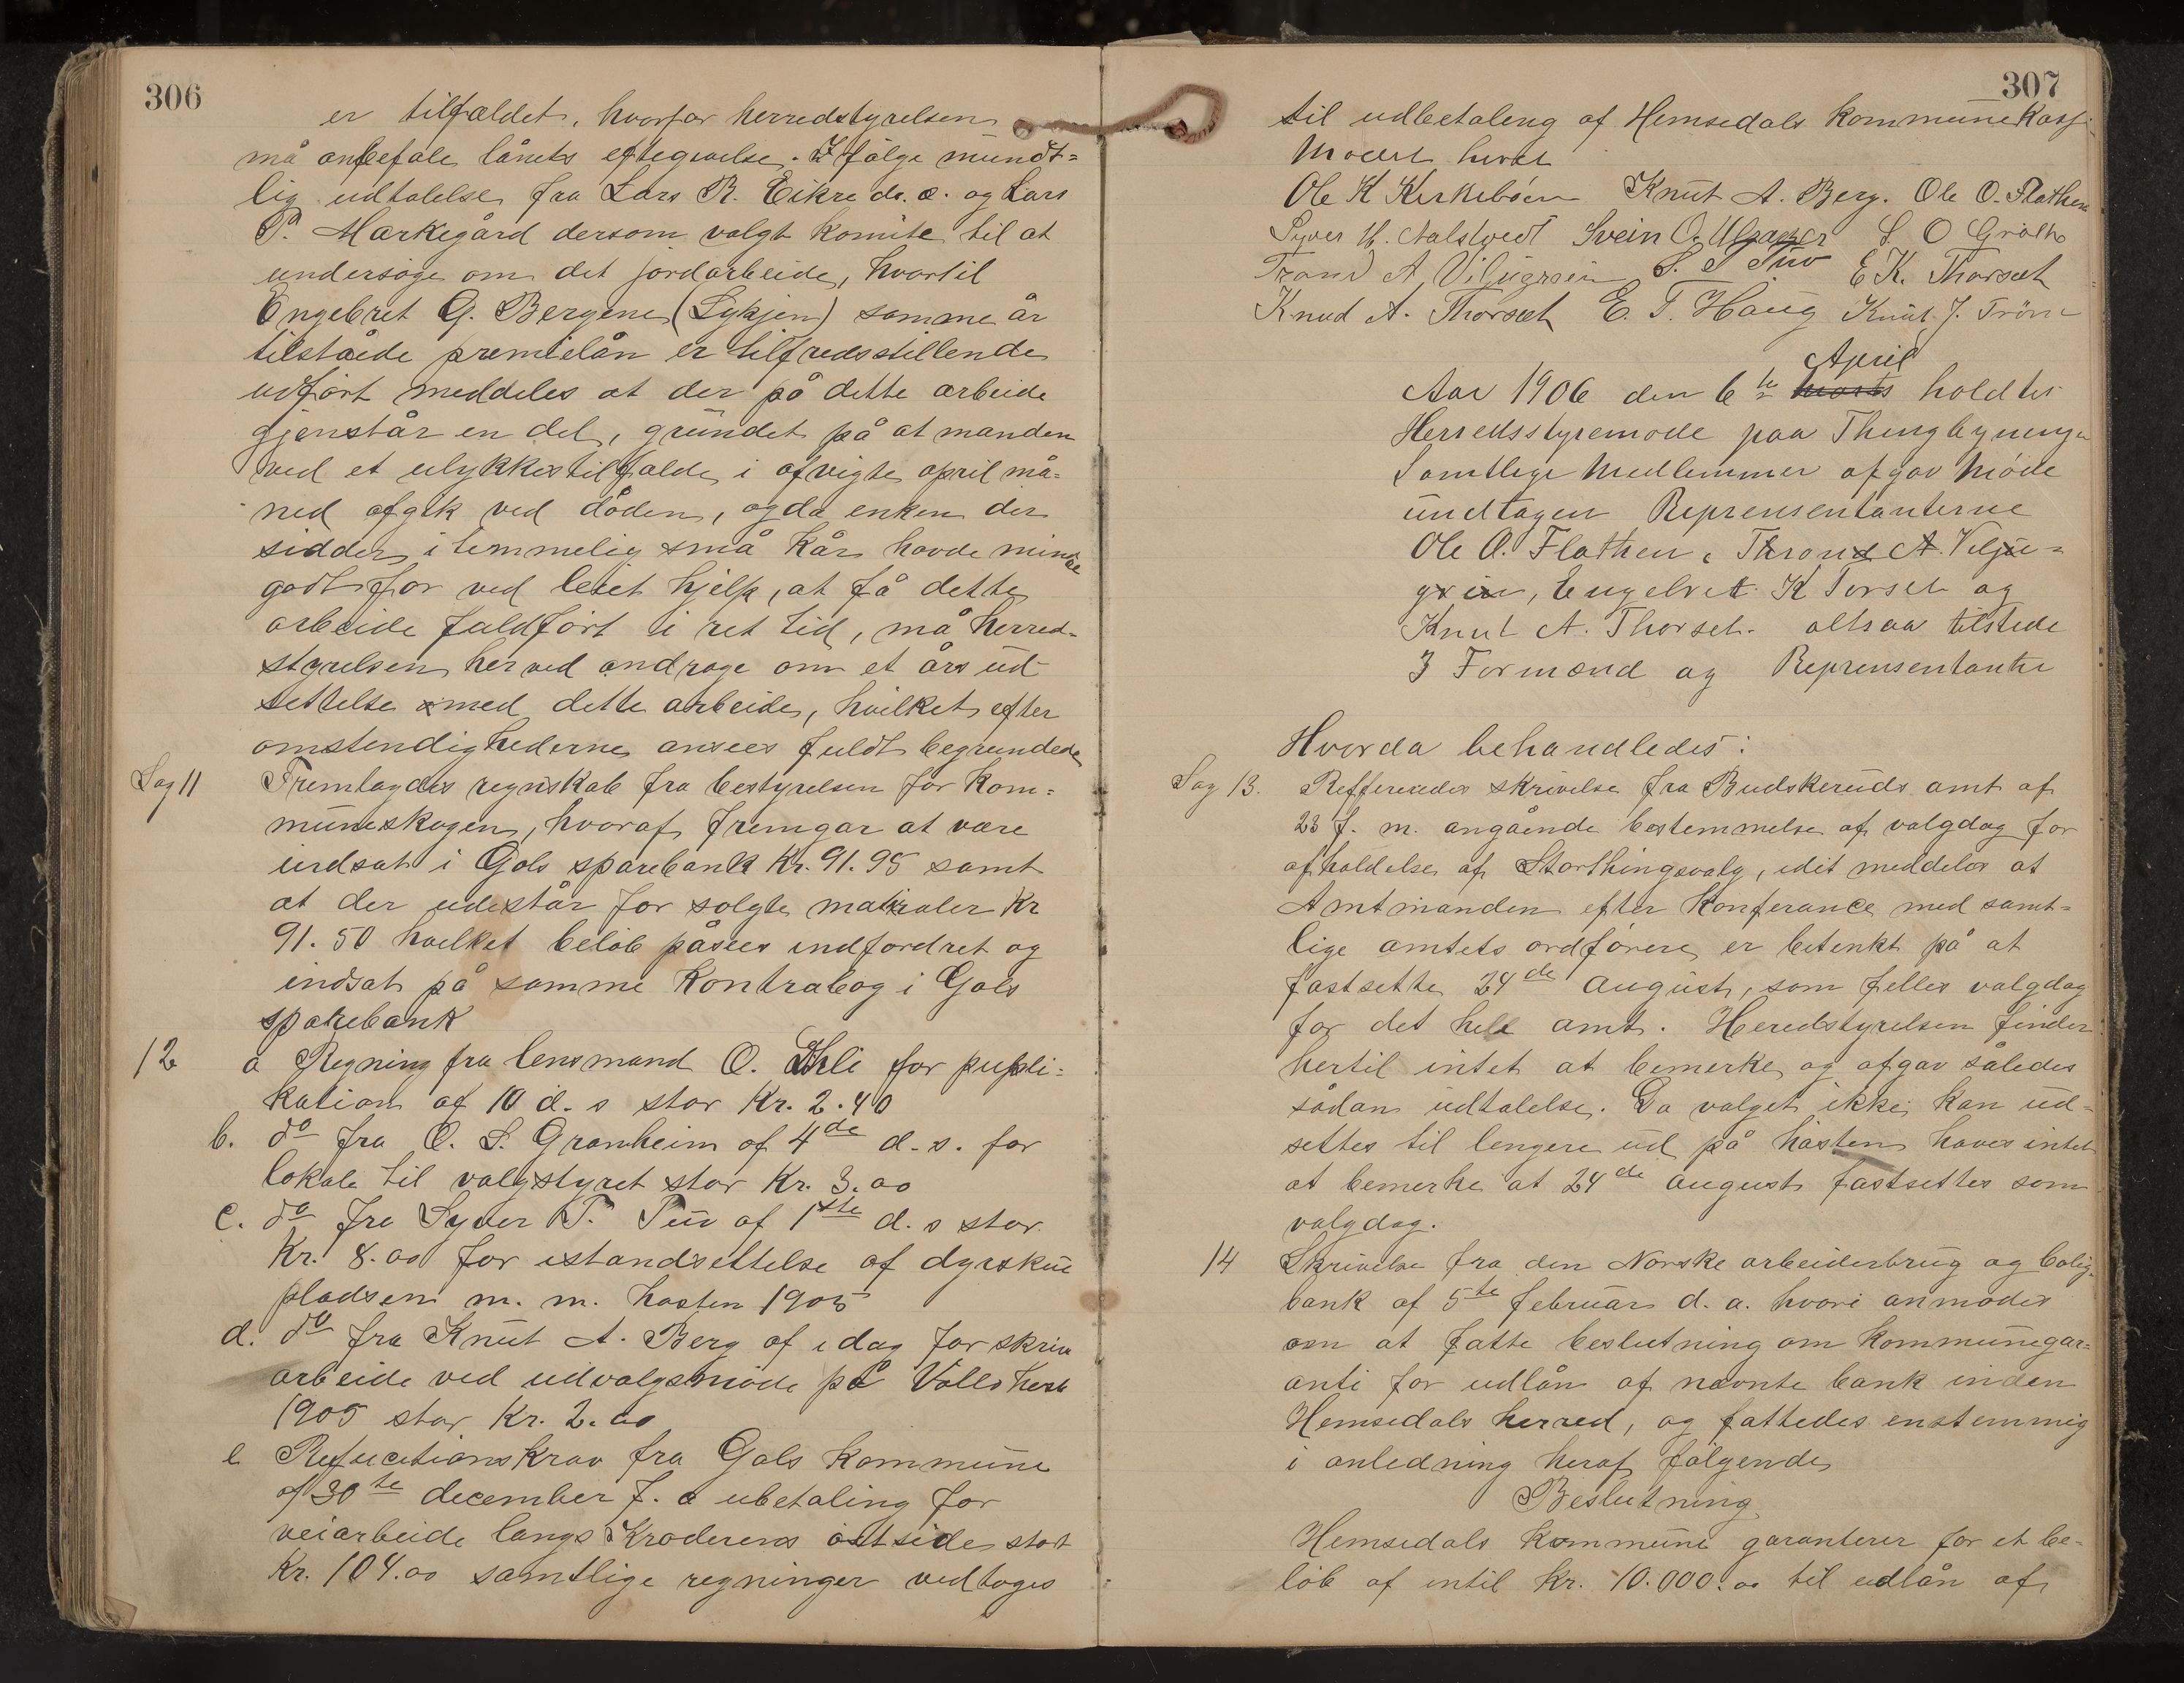 306
er tilfældet, hvorfor herredstyrelsen
må anbefale lånets eftegivelse. I følge mundt=
lig udtalelse fra Lars R. Eikre ds. æ. og Lars
P. Markegård dersom valgt komite til at
undersøge om det jordarbeide, hvortil
Engebret G. Bergene (Lykjen) samme år
tilståede premielån er tilfredsstillende
udført meddeles at der på dette arbeide
gjenstår en del, grundet på at manden
ved et ulykkestilfælde i afvigte april må=
ned afgik ved døden, og da enken der
sidder i temmelig små kår havde mindre
godt for ved leiet hjelp, at få dette
arbeide fuldført i ret tid, må herred=
styrelsen herved andrage om et års ud
settelse med dette arbeide, hvilket efter
omstendighederne ansees fuldt begrundede
Sag 11 Fremlagdes regnskab fra bestyrelsen for kom=
muneskogen, hvoraf fremgar at være
indsat i Gols sparebank Kr. 91.95 samt
at der udestår for solgte matrialer Kr
91.50 hvilket beløb påsees indfordret og
indsat på samme Kontrabog i Gols
sparebank
12 a Regning fra lensmand O. Ihli for pupli=
kation af 10 d. s stor Kr. 2.40
b. do fra O. S. Granheim af 4de d. s. for
lokale til valgstyret stor Kr. 3.00
c. do fra Syver T. Tuv af 1ste d. s stor
Kr. 8.00 for istandsettelse af dyrskue
pladsen m. m. høsten 1905
d. do fra Knut A. Berg af idag for skriv
arbeide ved udvalgsmøde på Volls høst
1905 stor Kr. 2.00
e Refucitionskrav fra Gols kommune
af 30te december f. a ubetaling for
veiarbeide langs Krøderens østside stort
Kr. 104.00 samtlige regninger vedtoges
307
til udbetaleng af Hemsedals kommunekasse
Mødet hevet
Ole K Kirkebøen Knut A. Berg. Ole O. Flathen
Syver H. Aalstvedt Svein O. Ulsaker S O Grøthe
Trond A Viljugrein S. T Tuv E K. Thorset
Knud A. Thorset E. T. Haug Knut J. Trøim
April
Aar 1906 den 6te marts holdtes
Herredsstyremøde paa Thingbyninga
Samtlige Medlemmer afgav Møde
undtagen Reprensentanterne
Ole O. Flathen, Thrond A. Velju=
grein, Engelbret K Torset og
Knut A. Thorset. altsaa tilstede
3 Formænd og Reprensentanter
Hvorda behandledes:
Sag 13. Reffereredes skrivelse fra Budskeruds amt af
23 f. m. angående bestemmelse af valgdag for
afholdelse af Storthingsvalg, idet meddeles at
Amtmanden efter Konferance med samt=
lige amtets ordførere er betenkt på at
fastsette 24de august, som felles valgdag
for det hele amt. Heredstyrelsen finder
hertil intet at bemerke og afgav således
sådan udtalelse. Da valget ikke kan ud=
settes til lengere ud på høsten haves intet
at bemerke at 24de august fastsettes som
valgdag.
14 Skrivelse fra den Norske arbeiderbrug og bolig=
bank af 5te februar d. a. hvori anmodes
om at fatte beslutning om kommunegar=
anti for udlån af nævnte bank inden
Hemsedals herred, og fattedes enstemmig
i anledning heraf følgende
Beslutning
Hemsedals kommune garanterer for et be=
løb af intil Kr. 10.000.00 til udlån af